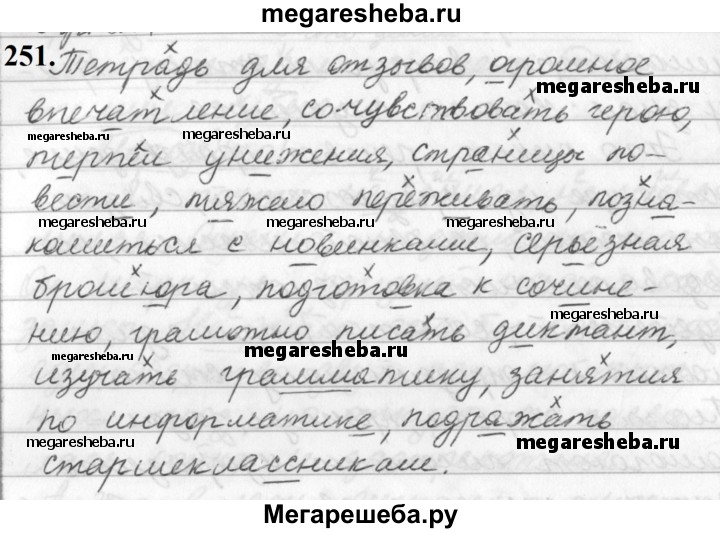 megaresheba.ru
251. Тетрадь для отзывов, огромное
megaresheba.ru
впечатление, сочувствовать герою,
megaresheba.ru megaresheba.ru
терпел унижения, страницы по-
megaresheba.ru
вести, тяжело переживать, позна-
megaresheba.ru megaresheba.ru megaresheba.ru
комиться с новинками, серьёзная
брошюра, подготовка к сочине-
нию, грамотно писать диктант,
megaresheba.ru megaresheba.ru
изучать грамматику, занятия
по информатике, подражать
megaresheba.ru megaresheba.ru
старшеклассникам.
Мегарешеба.ру